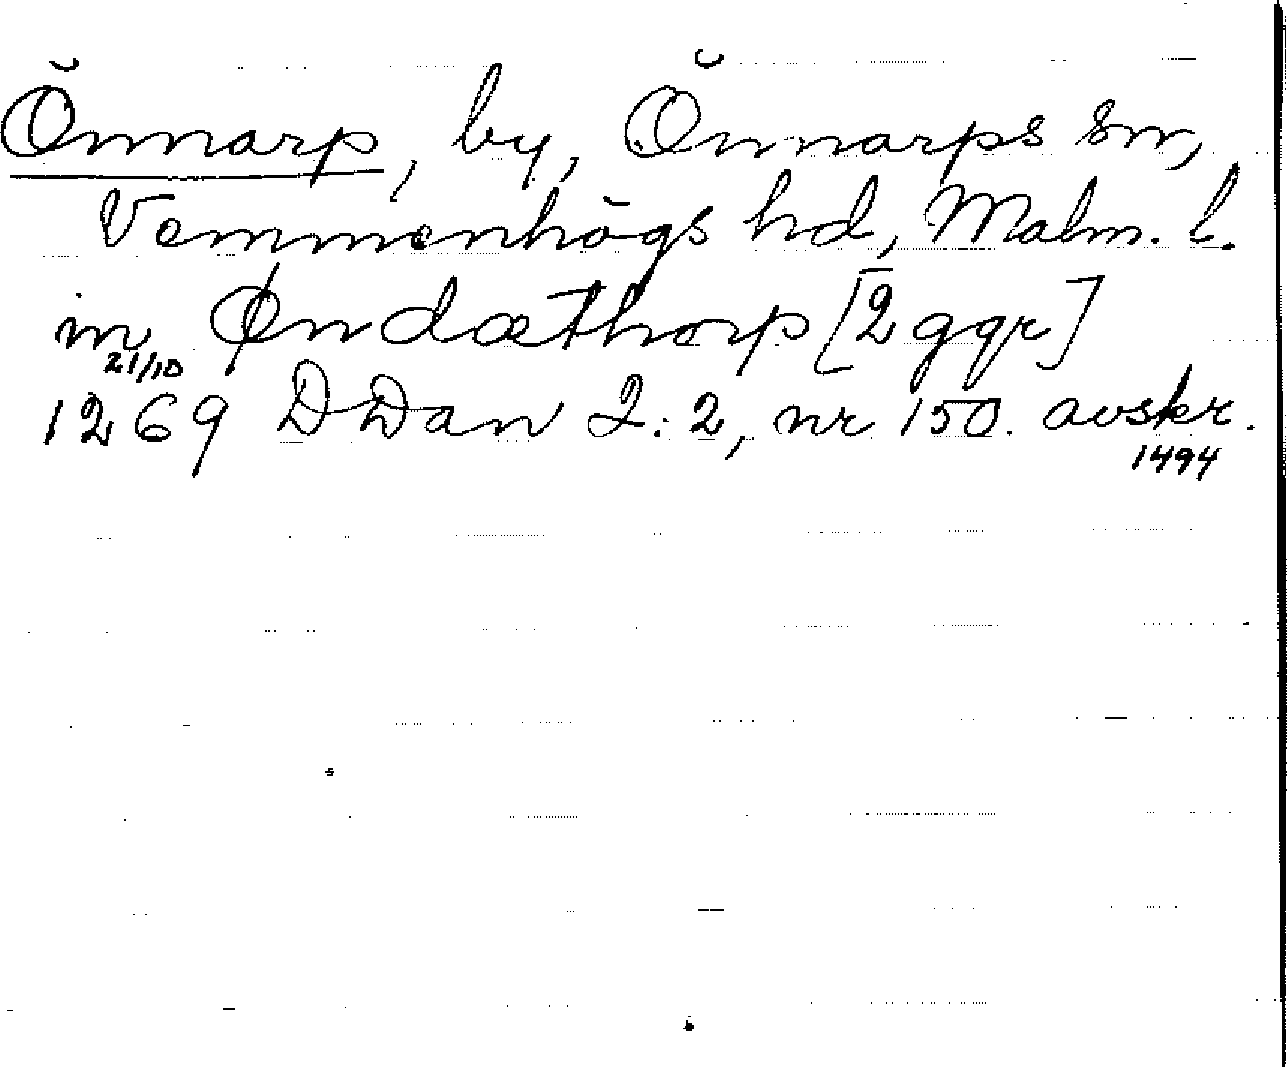 Önnarp, by, Önnarps sn,
Vemmenhögs hd, Malm. l.
in Øndæthorp [2 ggr]
21/10
1269 DDan 2:2, nr 150. avskr.
1494